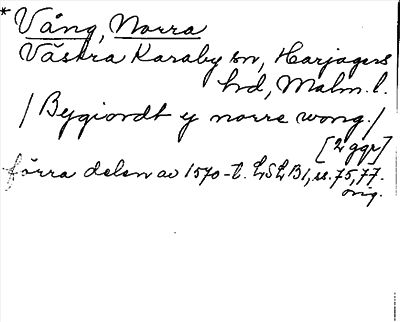 * Vång, Norra
Västra Karaby sn, Harjagers
hd, Malm. l.
/ Bygiordt y norre wong. /
[2 ggr]
förra delen av 1570-t. LSLB1, ss. 75, 77.
orig.